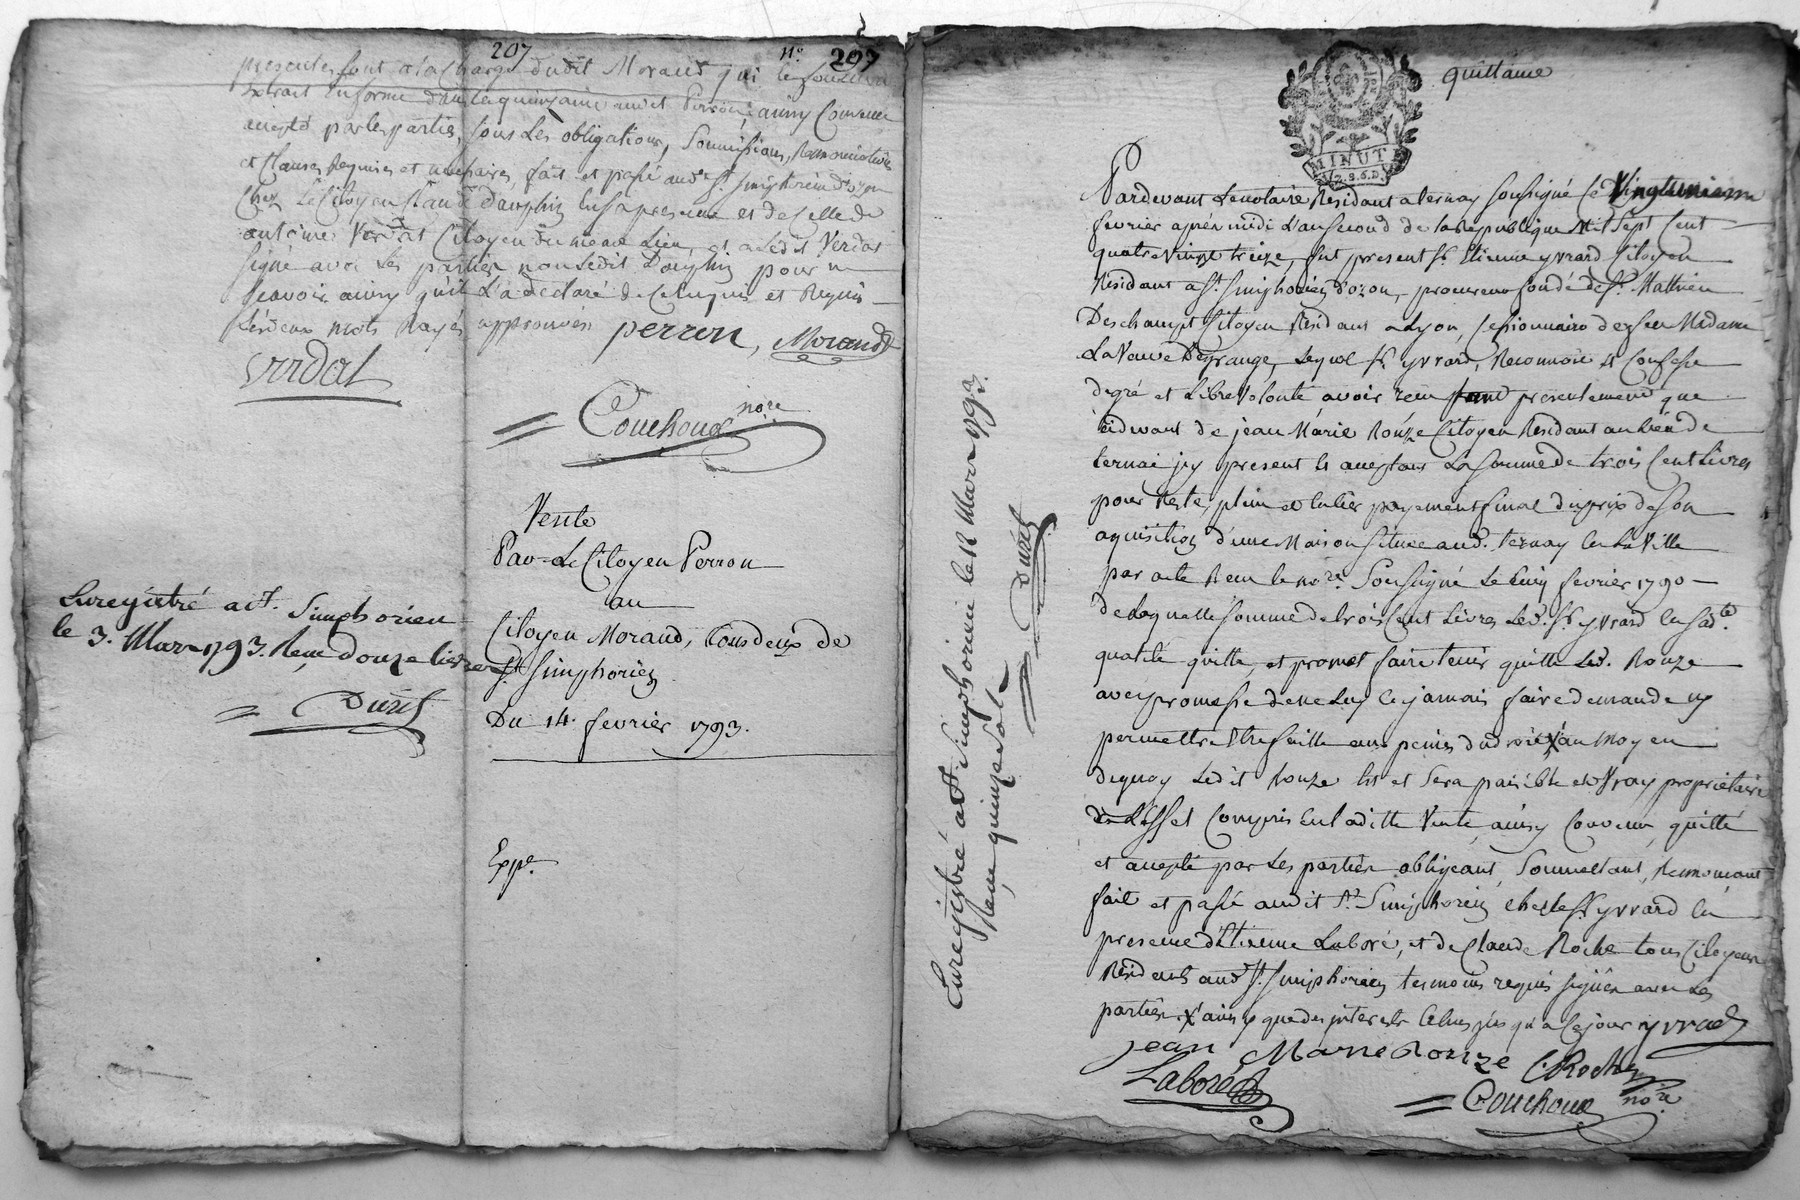 207
No. 207
presentes sont a la charge dudit Morand qui le
extrait en forme dans la quinzaine audit Perron, ainsy convenu
accepté par les parties, sous les obligations, Soumissions, Renonciations
et clauses Requises et necessaires, fait et passé aud. St. Simphorien d'ozon
Chez Le Citoyen Claude Dauphin En sa presence et de celle de
antoine Verdat Citoyen du meme Lieu, et a Ledit Verdat
signé avec Les parties non Ledit Dauphin pour ne
scavoir ainsy qu'il L'a declaré de ce Enquis et Requis
Les deux mots Rayés approuvés perron, Morand
Verdat
Couchoud nore
Vente
Par Le Citoyen Perron
au
Citoyen Morand, tous deux de
St. Simphorien
Du 14. fevrier 1793.
Enregistré a St. Simphorien
le 3. Mars 1793. Reçu douze livres
Duret
Expé.
quittance
MINUT
2.S.6.D.
Pardevant Le notaire Resident a ternay soussigné le Vingtunieme
fevrier aprés midi L'an Second de la Republique Mil Sept Cent
quatre Vingt treize, fut present Sr. Etienne yvrard Citoyen
Résidant a St. Simphorien d'ozon, procureur fondé de Sr. Mathieu
Deschampt Citoyen Residant a Lyon, Cessionnaire de feu Madame
La Veuve Degrange, Lequel Sr. yvrard, Reconnoit et Confesse
de gré et Libre Volonté avoir reçu tant presentement que
cidevant de jean Marie Rouze Citoyen Residant au lieu de
ternai icy present et acceptant La somme de trois Cent Livres
pour Reste, plein et Entier payement final du prix de son
aquisition d'une Maison Située aud. ternay En La Ville
par acte Reçu le nore. Soussigné Le Cinq fevrier 1790
de Laquelle somme de trois Cent Livres Led. Sr. yvrard En sad.te
qualité quitte, et promet faire tenir quitte Led. Rouze
avec promesse de ne Luy En jamais faire demande ny
permettre Etre faitte aux peines du droit X au Moyen
de quoy Ledit Rouze Est et Sera paisible et Vray proprietaire
de L'effet Compris En La ditte Vente, ainsy Convenu, quitté
et accepté par Les parties obligeant, Soumettant, Renonçant
fait et passé audit St. Simphorien chez le Sr yvrard En
presence d'Etienne Laboré, et de Claude Roche tous Citoyens
Residents aud. St. Simphorien temoins requis signés avec Les
parties X ainsy que des interets Echus jusqu'a Ce jour yvrard
jean Marie Rouze CRoche
Laboré
Couchoud nore.
Enregistré a St. Simphorien le 12 Mars 1793.
Reçu quinze Sols
Duret